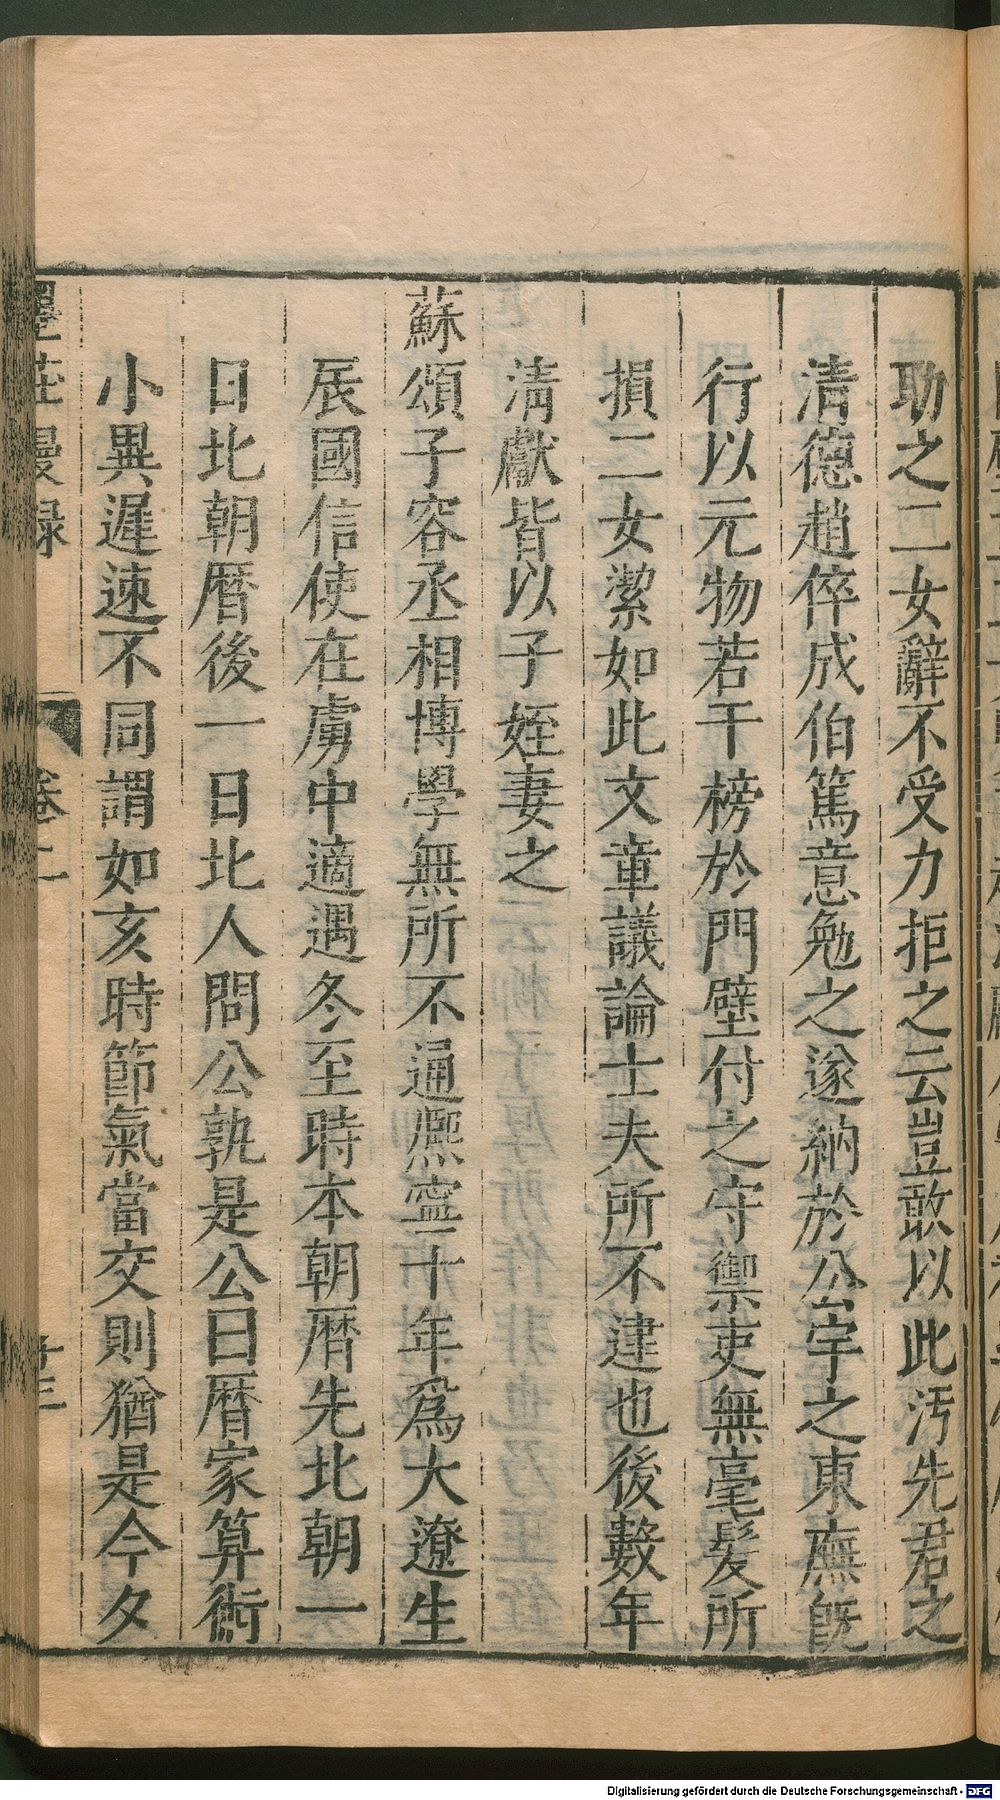 助之二女辭不受力拒之云豈敢以此汚先君之
清德趙倅成伯篤意勉之遂納於公宇之東廡旣
行以元物若干榜於門壁付之守禦吏無毫髮所
損二女潔如此文章議論士夫所不逮也後數年
清獻皆以子姪妻之
蘇頌子容丞相博學無所不通熈寧十年爲大遼生
辰國信使在虜中適遇冬至時本朝曆先北朝一
日北朝曆後一日北人問公孰是公曰曆家算術
小異遲速不同謂如亥時節氣當交則猶是今夕
墨莊漫録
卷二
Digitalisierung gefördert durch die Deutsche Forschungsgemeinschaft - DFG